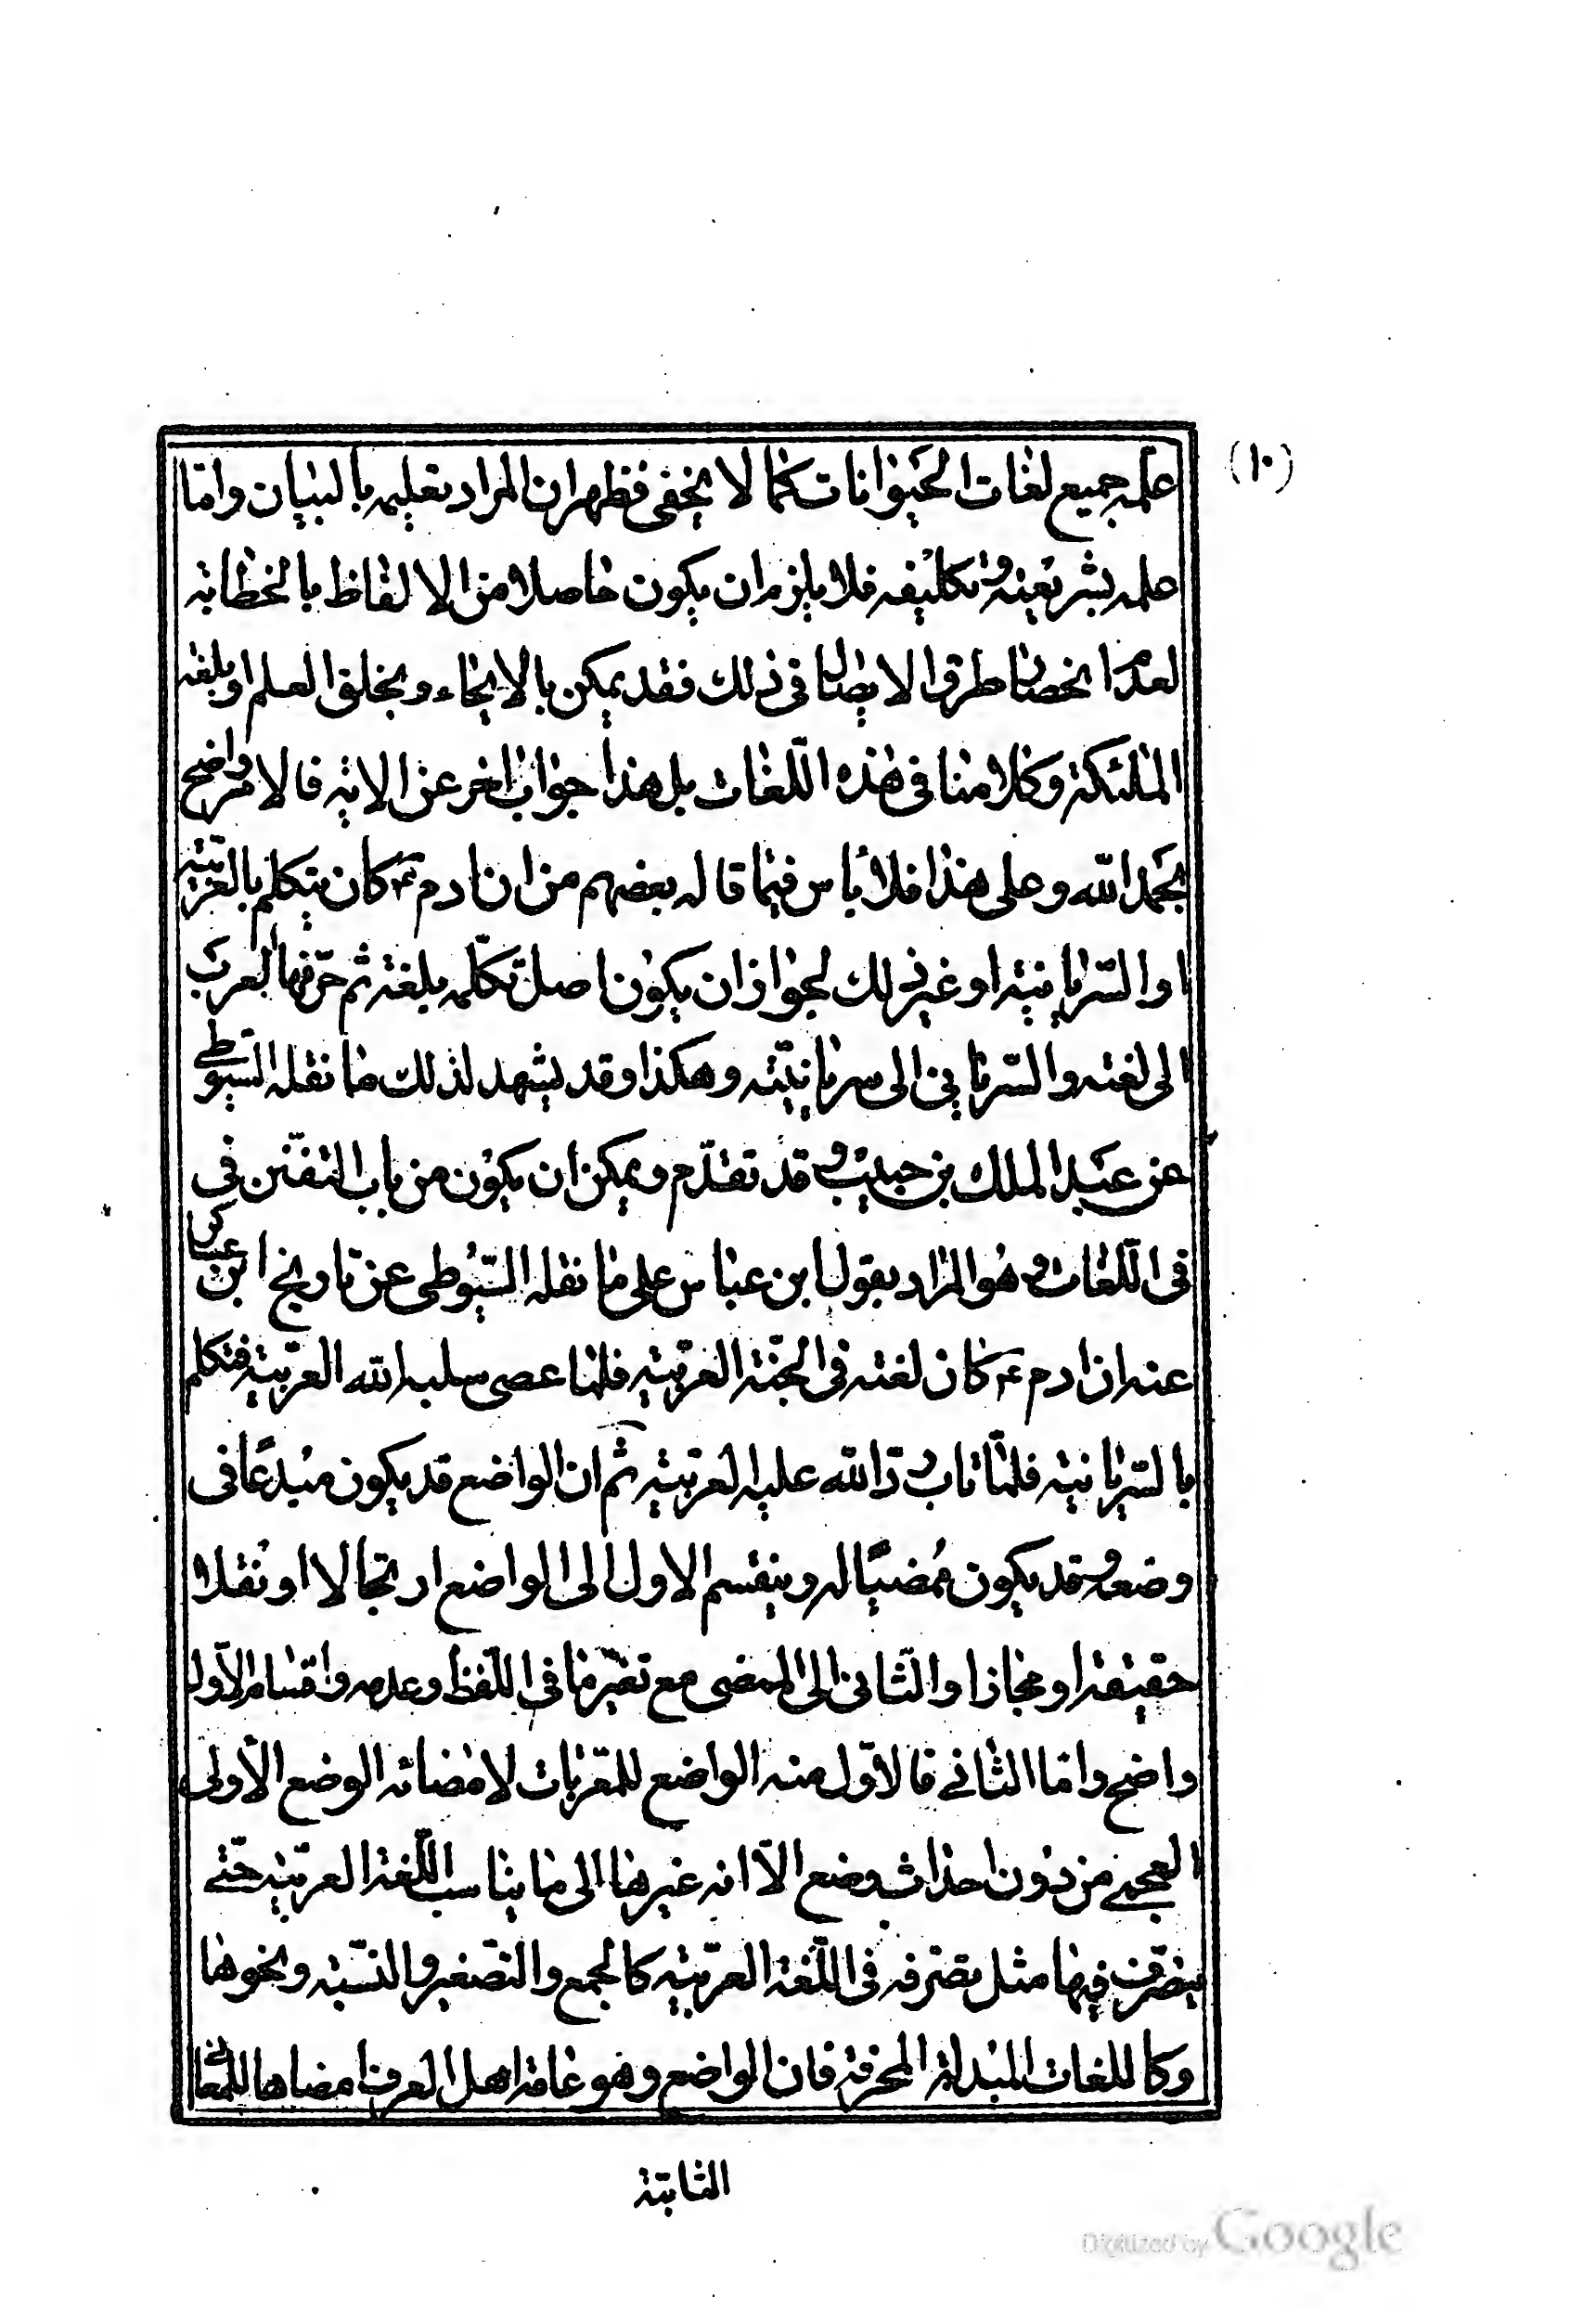 (١٠)
علمه جميع لغات الحيوانات كما لا يخفى فظهر ان المراد تعليمه بالبيان واما
علمه بشريعته وتكليفه فلا يلزم ان يكون حاصلا من الالفاظ بالخطابة
لعدم انحصار طرق الايصال فى ذلك فقد يمكن بالايحاء وبخلق العلم او بلغة
الملئكة وكلامنا فى هذه اللّغات بل هذا جواب اخر عن الاية فالامر واضح
بحمد الله وعلى هذا فلا بأس فيما قاله بعضهم من ان ادم ع كان يتكلم بالعربيّة
او السّريانيّة او غير ذلك لجواز ان يكون اصل تكلّمه بلغة ثم حرّفها العرب
الى لغته والسّريانى الى سريانيّته وهكذا وقد يشهد لذلك ما نقله السّيوطى
عن عبد الملك بن حبيب وقد تقدّم ويمكن ان يكون من باب التفنّن فى
فى اللّغات وهو المراد بقول ابن عباس على ما نقله السّيوطى عن تاريخ ابن عساكر
عنه ان ادم ع كان لغته فى الجنّة العربيّة فلمّا عصى سلبه الله العربيّة فتكلم
بالسّريانية فلمّا تاب ردّ الله عليه العربيّة ثمّ ان الواضع قد يكون مبدعًا فى
وضعه وقد يكون ممضيًا له وينقسم الاول الى الواضع ارتجالا او نقلا
حقيقة او مجازا والثّانى الى الممضى مع تغيّر ما فى اللّفظ وعدمه واقسام الاوّل
واضح وامّا الثانى فالاوّل منه الواضع للمعّربات لامضائه الوضع الاولى
العجمى من دون احداث وضع الّا انه غيرها الى ما يناسب اللّغة العربيّة حتّى
يتصرّف فيها مثل تصرّفه فى اللّغة العربيّة كالجمع والتصغير والنّسبة ونحوها
وكاللغات المبدلة المحرفة فان الواضع وهو عامّة اهل العرف امضاها للمعانى
الثابتة
Digitized by Google